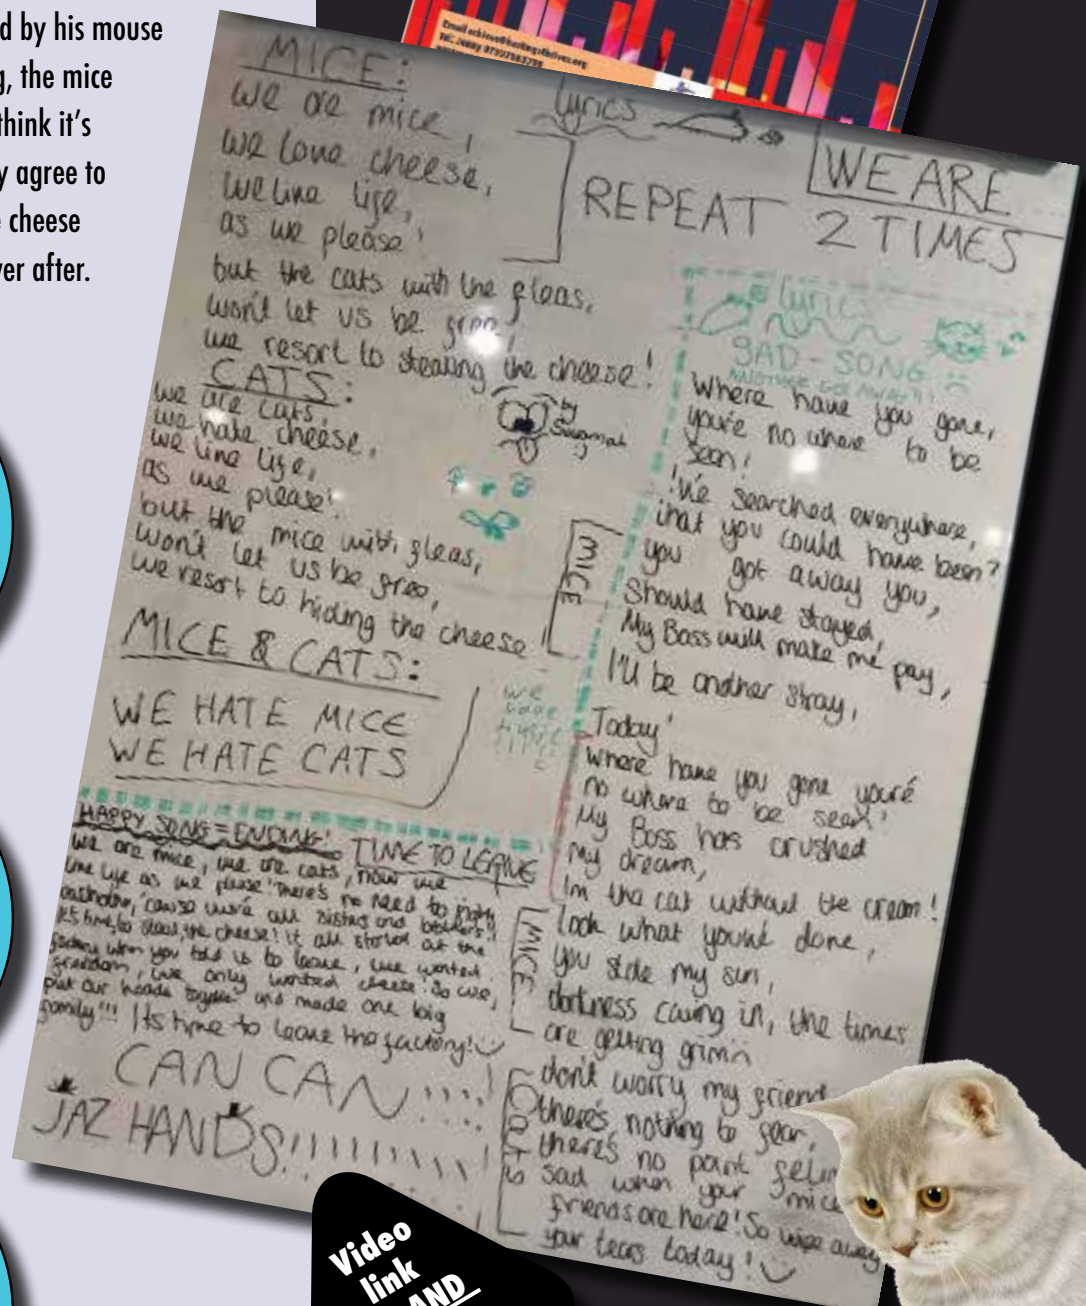 d by his mouse
g, the mice
think it's
y agree to
e cheese
ver after.
Email achieve@hastingsthrives.org
MICE:
lyrics
WE ARE
we are mice,
we love cheese,
we live life,
as we please!
REPEAT 2 TIMES
but the cats with the fleas,
won't let us be free,
we resort to stealing the cheese!
CATS:
we are cats,
we hate cheese,
we live life,
as we please!
but the mice with fleas,
won't let us be free,
we resort to hiding the cheese!
by
MICE & CATS:
WE HATE MICE
WE HATE CATS
we
love
lyrics
SAD-SONG
Where have you gone,
you're no where to be
seen!
I've searched everywhere,
that you could have been?
MICE
you got away you,
Should have stayed,
My Boss will make me pay,
I'll be another stray,
Today!
where have you gone you're
no where to be seen!
My Boss has crushed
my dream,
Im the cat without the cream!
MICE
look what you've done,
you stole my sun,
darkness caving in, the times
are getting grim
don't worry my friend
there's nothing to fear,
there's no point
sad when your mice
friends are here! So wipe away
your tears today!
HAPPY SONG = ENDING! TIME TO LEAVE
we are mice, we are cats, now we
live life as we please! There's no need to fight
'cause we're all sisters and brothers!!
let's time to steal the cheese! it all started at the
factory when you told us to leave, we wanted
freedom, we only wanted cheese! So we,
put our heads together and made one big
family!!! Its time to leave the factory!
CAN CAN!!!!
JAZ HANDS!!!!!!!!!!
Video
link
AND